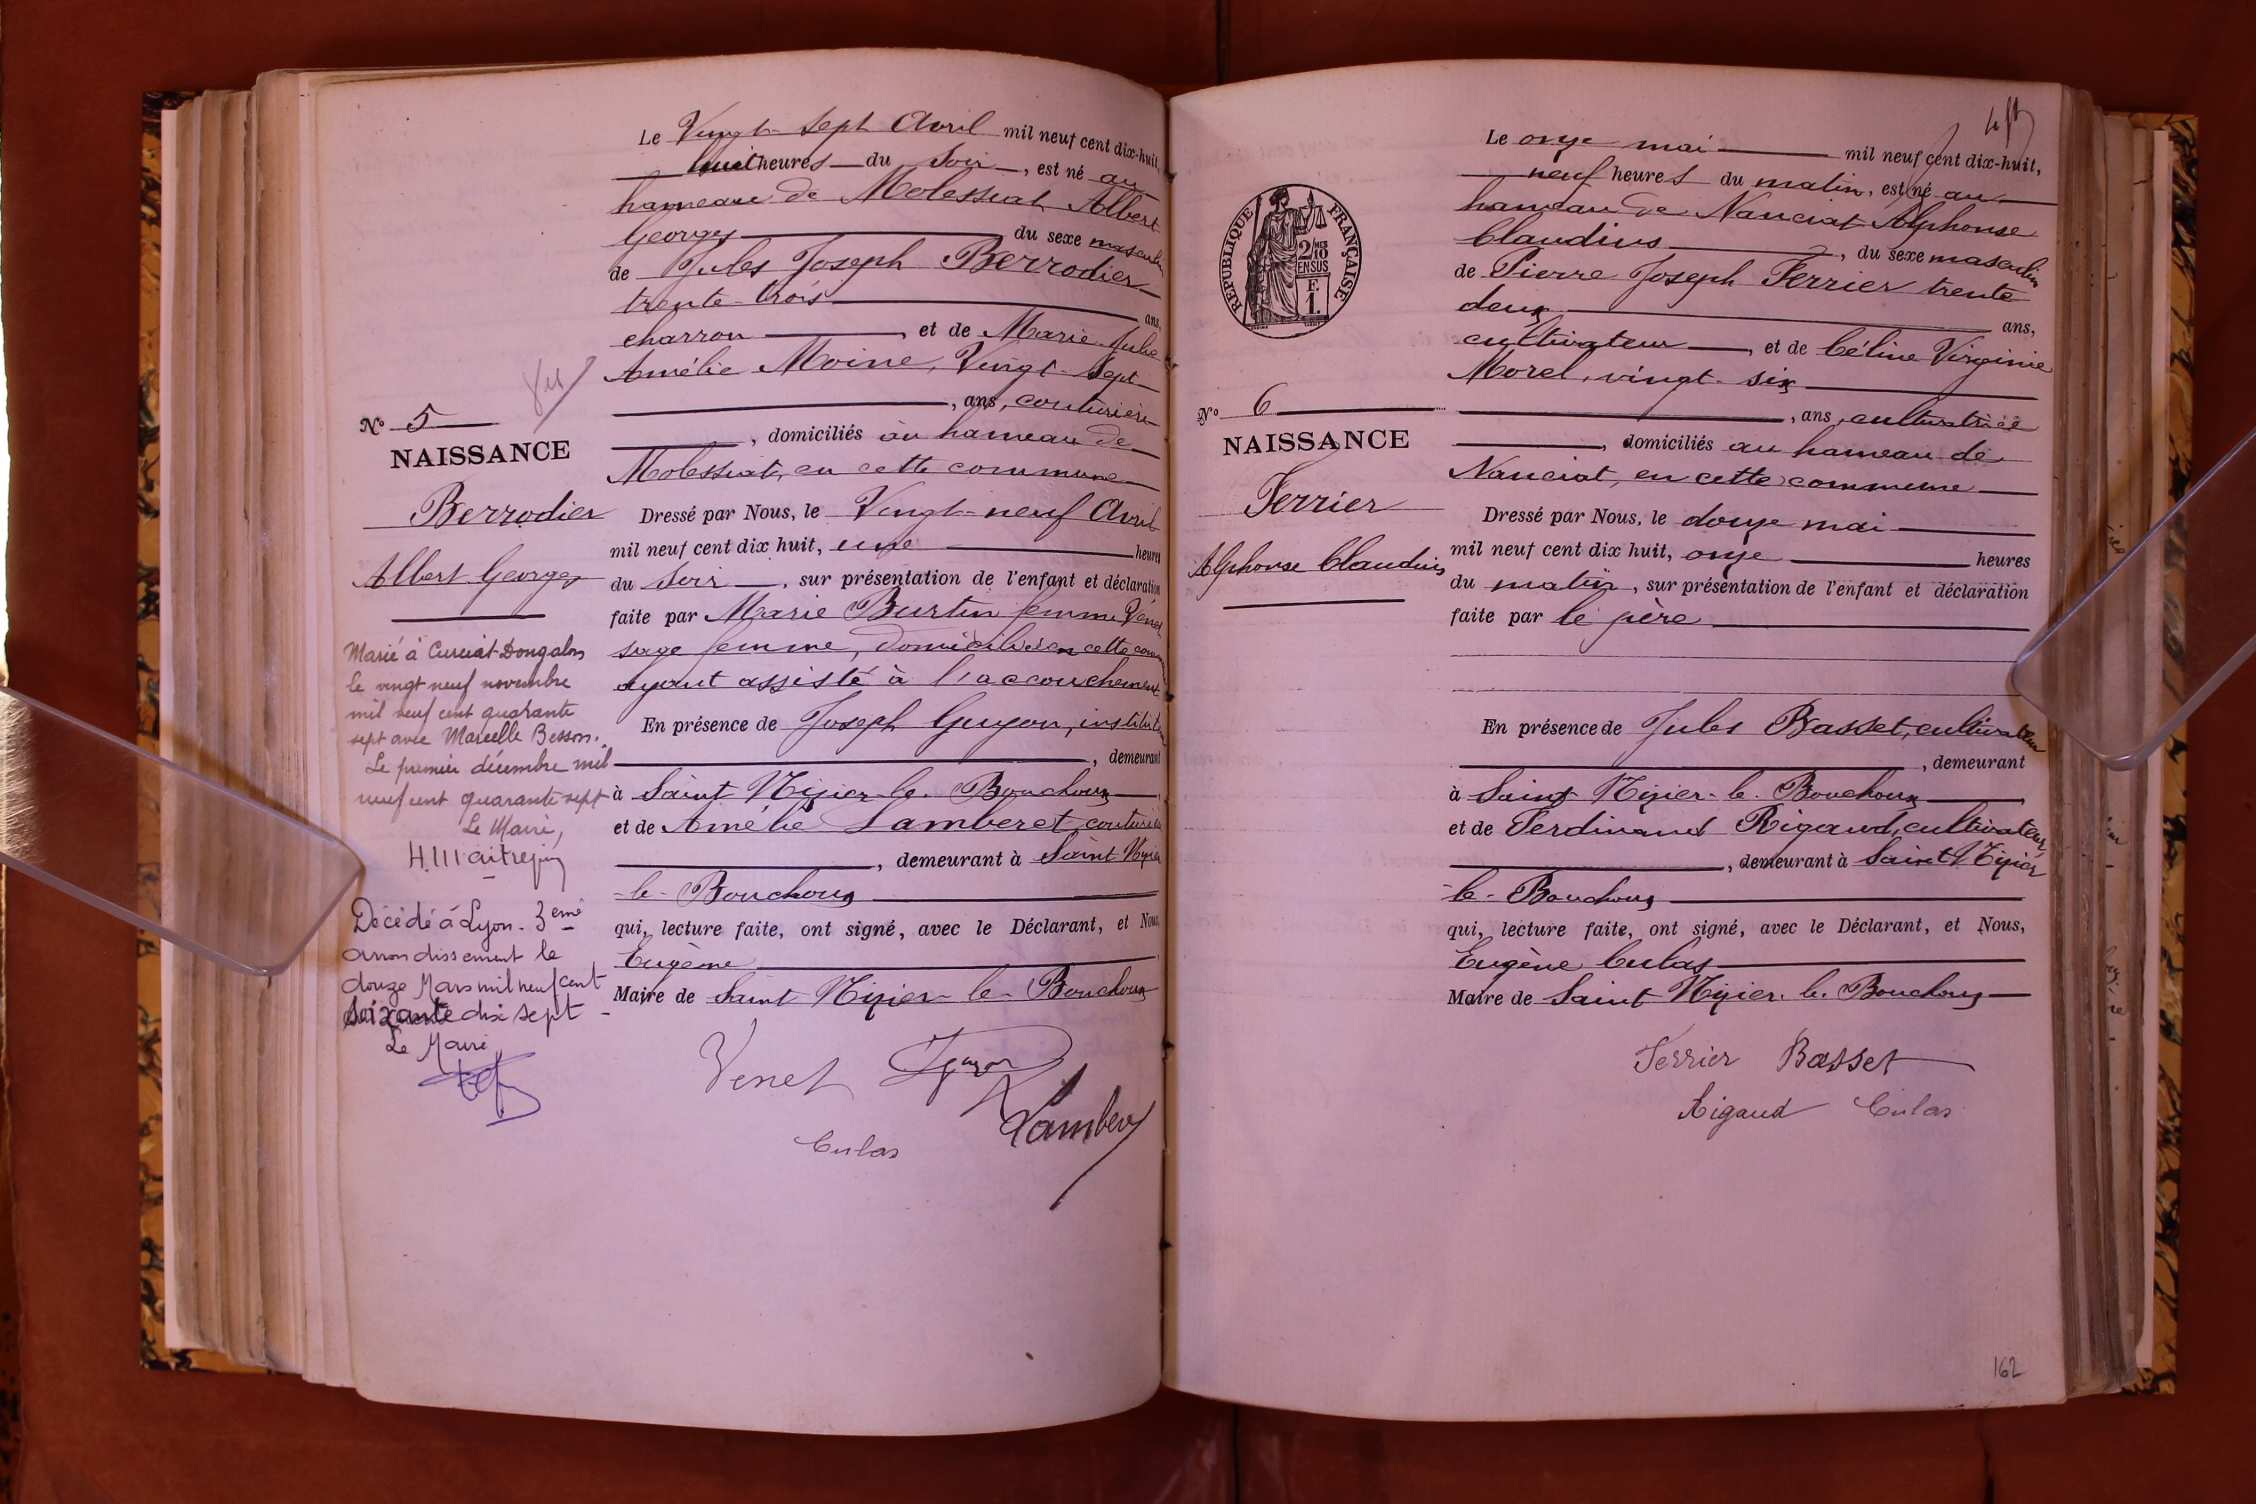 Le Vingt-sept Avril mil neuf cent dix-huit,
huit heures du soir, est né au
hameau de Molessiat Albert
Georges du sexe masculin
de Jules Joseph Berrodier
trente-trois ans,
charron, et de Marie Julie
Amélie Moine, Vingt-sept
, ans, couturière
, domiciliés au hameau de
Molessiat, en cette commune
Dressé par Nous, le Vingt-neuf Avril
mil neuf cent dix huit, une heures
du soir, sur présentation de l'enfant et déclaration
faite par Marie Burtin femme Venet
sage femme, domiciliée en cette commune
ayant assisté à l'accouchement
En présence de Joseph Guyon, instituteur
, demeurant
à Saint Nizier-le-Bouchoux
et de Amélie Lamberet, couturière
, demeurant à Saint Nizier
-le-Bouchoux
qui, lecture faite, ont signé, avec le Déclarant, et Nous,
Eugène
Maire de Saint Nizier-le-Bouchoux
Venet
Culas
Lambert
N° 5
NAISSANCE
Berrodier
Albert Georges
Marié à Curciat-Dongalon
le vingt neuf novembre
mil neuf cent quarante
sept avec Marcelle Besson.
Le premier décembre mil
neuf cent quarante sept
Le Maire,
Décédé à Lyon. 3eme
arrondissement le
douze Mars mil neuf cent
soixante dix sept
Le Maire
Le onze mai mil neuf cent dix-huit,
neuf heures du matin, est né au
hameau de Nanciat Alphonse
Claudius, du sexe masculin
de Pierre Joseph Ferrier trente
deux ans,
cultivateur, et de Céline Virginie
Morel, vingt-six
, ans, cultivatrice
, domiciliés au hameau de
Nanciat, en cette commune
Dressé par Nous, le douze mai
mil neuf cent dix huit, onze heures
du matin, sur présentation de l'enfant et déclaration
faite par le père
En présence de Jules Basset, cultivateur
, demeurant
à Saint Nizier-le-Bouchoux
et de Ferdinand Rigaud, cultivateur
, demeurant à Saint Nizier
-le-Bouchoux
qui, lecture faite, ont signé, avec le Déclarant, et Nous,
Eugène Culas
Maire de Saint Nizier-le-Bouchoux
Ferrier Basset
Rigaud Culas
RÉPUBLIQUE FRANÇAISE
2/10MES
EN SUS
F.
1.
N° 6
NAISSANCE
Ferrier
Alphonse Claudius
162